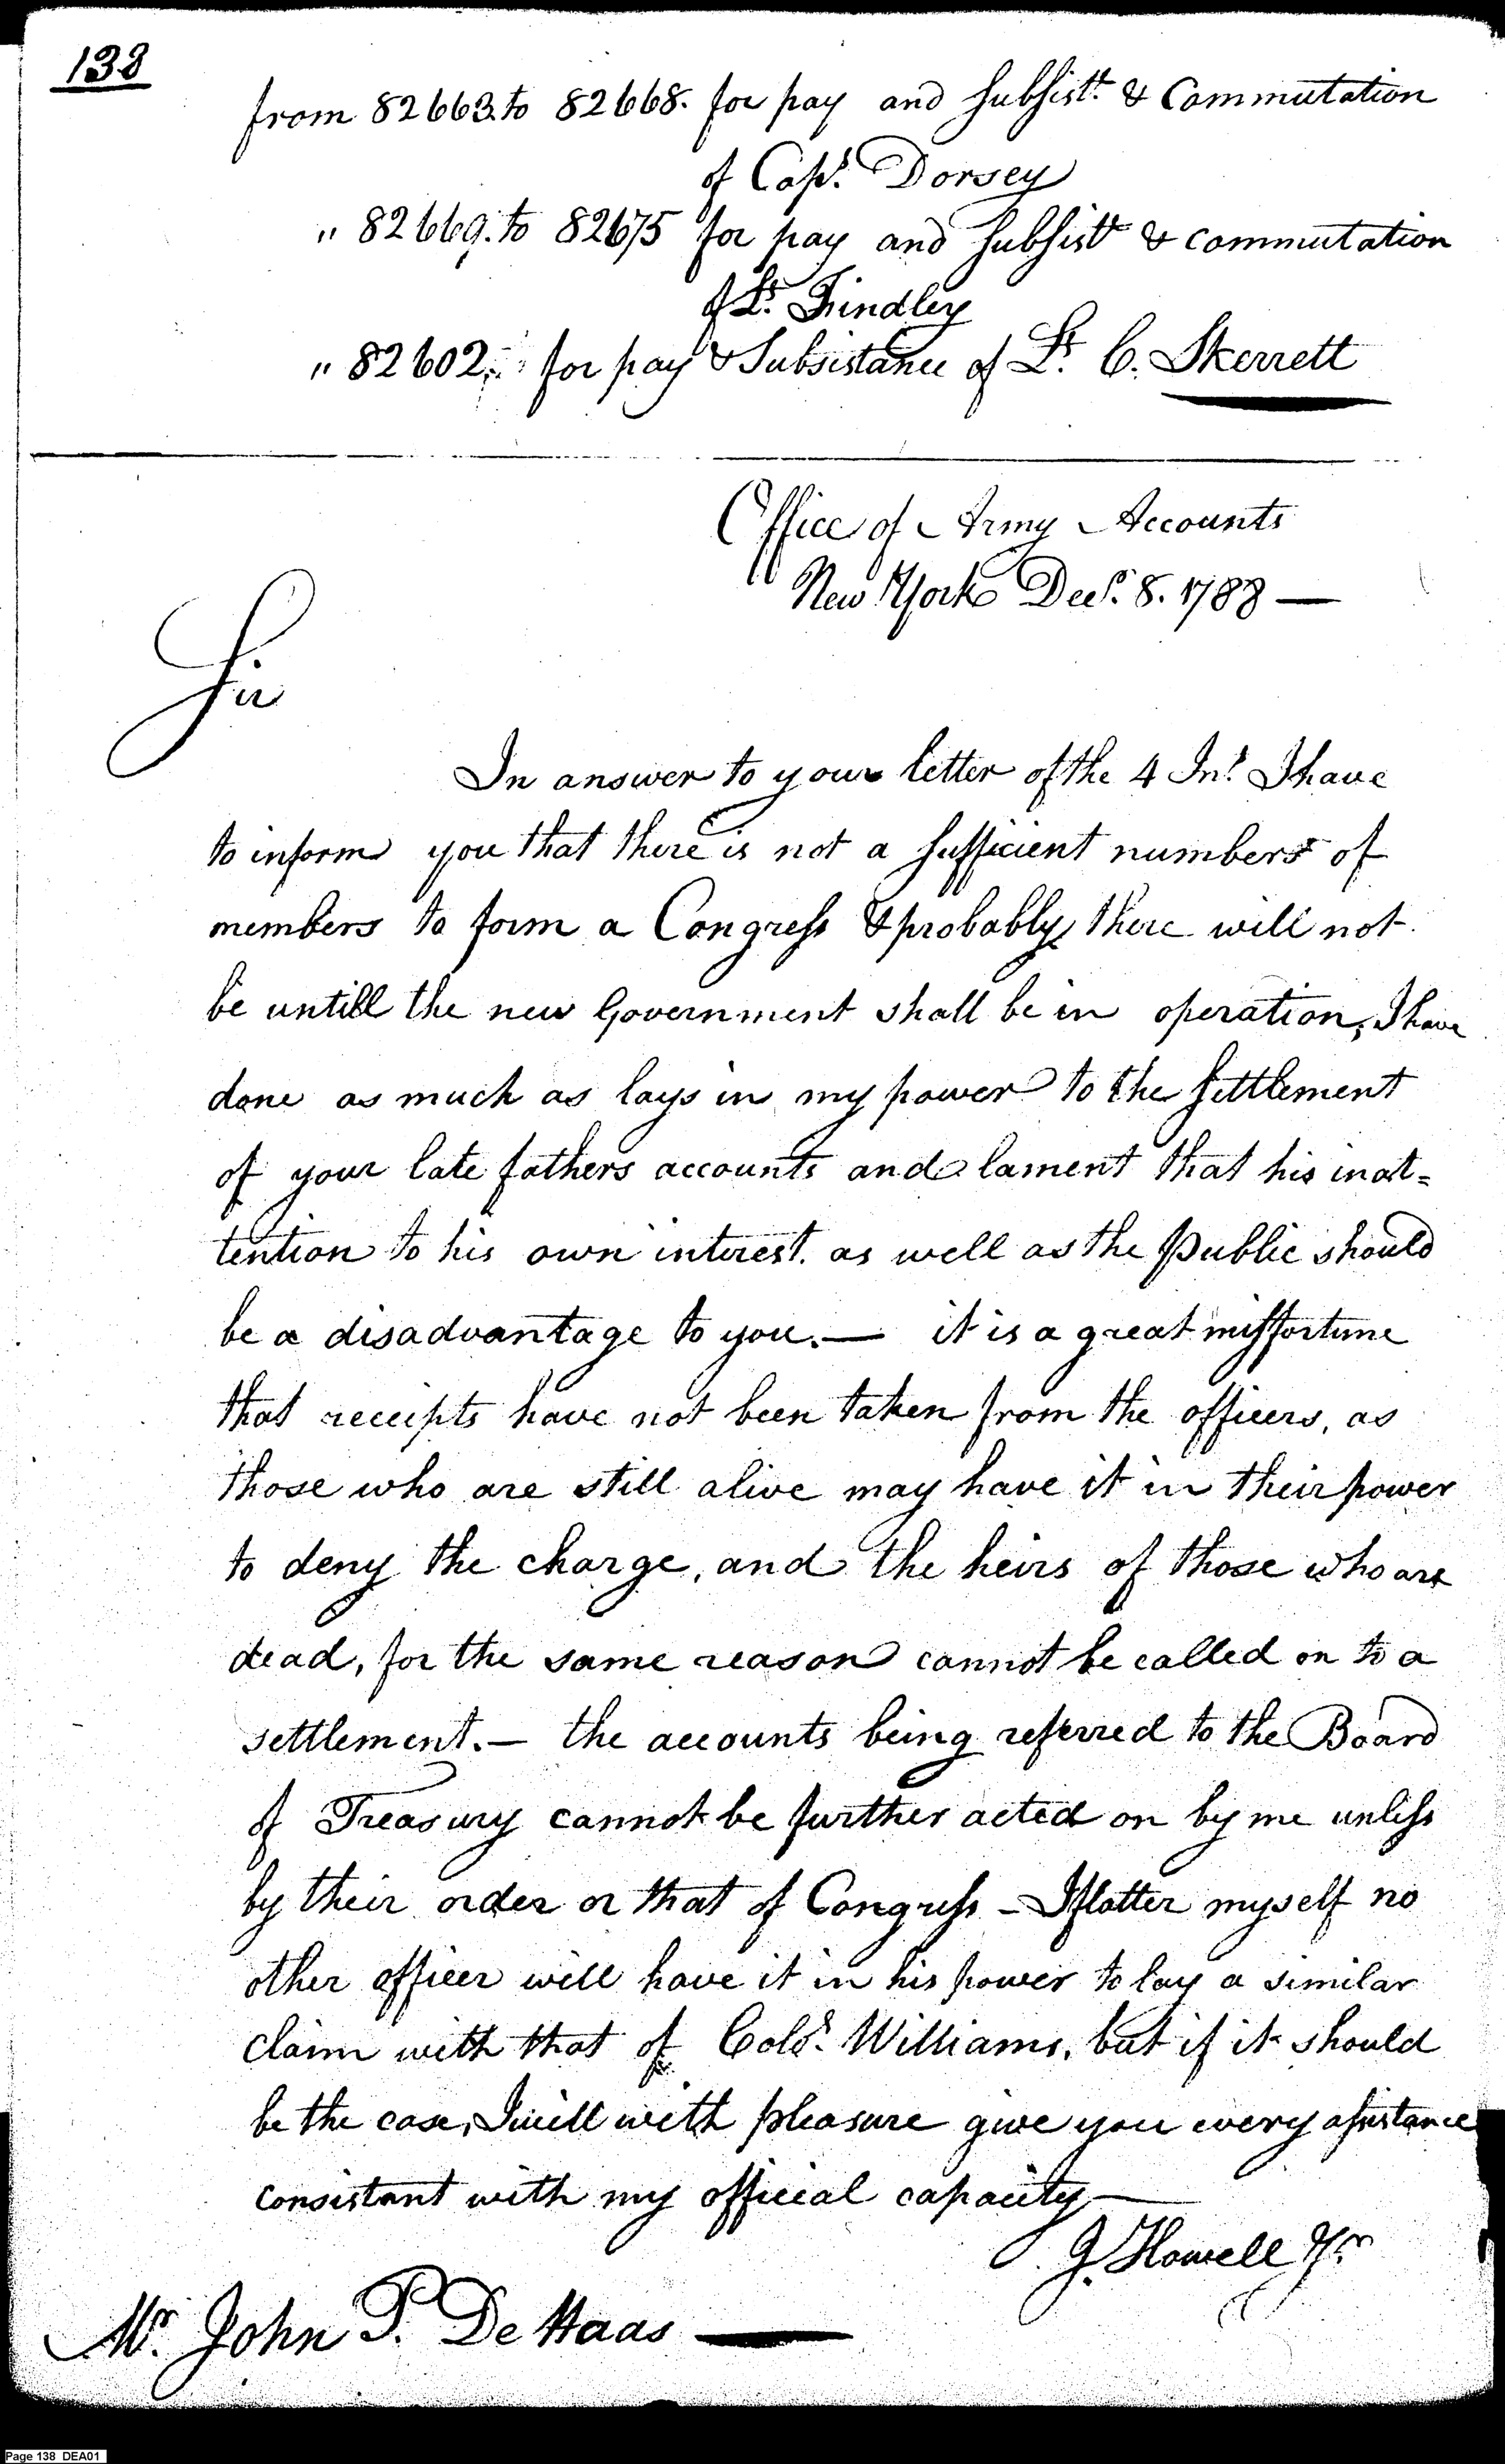 138
from 82663. to 82668. for pay and Subsist.t & Commutation
of Capt. Dorsey
" 82669. to 82675 for pay and Subsist.t & commutation
of Lt. Findley
" 82602. for pay & Subsistance of Lt. C. Skerrett
Office of Army Accounts
New York Decr. 8. 1788 —
Sir
In answer to your letter of the 4 Int. I have
to inform you that there is not a sufficient numbers of
members to form a Congress & probably there will not
be untill the new Government shall be in operation, I have
done as much as lays in my power to the settlement
of your late fathers accounts and lament that his inat=
tention to his own interest. as well as the Public should
be a disadvantage to you. — it is a great missfortune
that receipts have not been taken from the officers, as
those who are still alive may have it in their power
to deny the charge, and the heirs of those who are
dead, for the same reason cannot be called on to a
settlement. — the accounts being referred to the Board
of Treasury cannot be further acted on by me unless
by their order or that of Congress - I flatter myself no
other officer will have it in his power to lay a similar
claim with that of Colo. Williams, but if it should
be the case, I will with pleasure give you every assistance
consistant with my official capacity —
J. Howell Jr.
Mr. John P. De Haas —
Page 138 DEA01